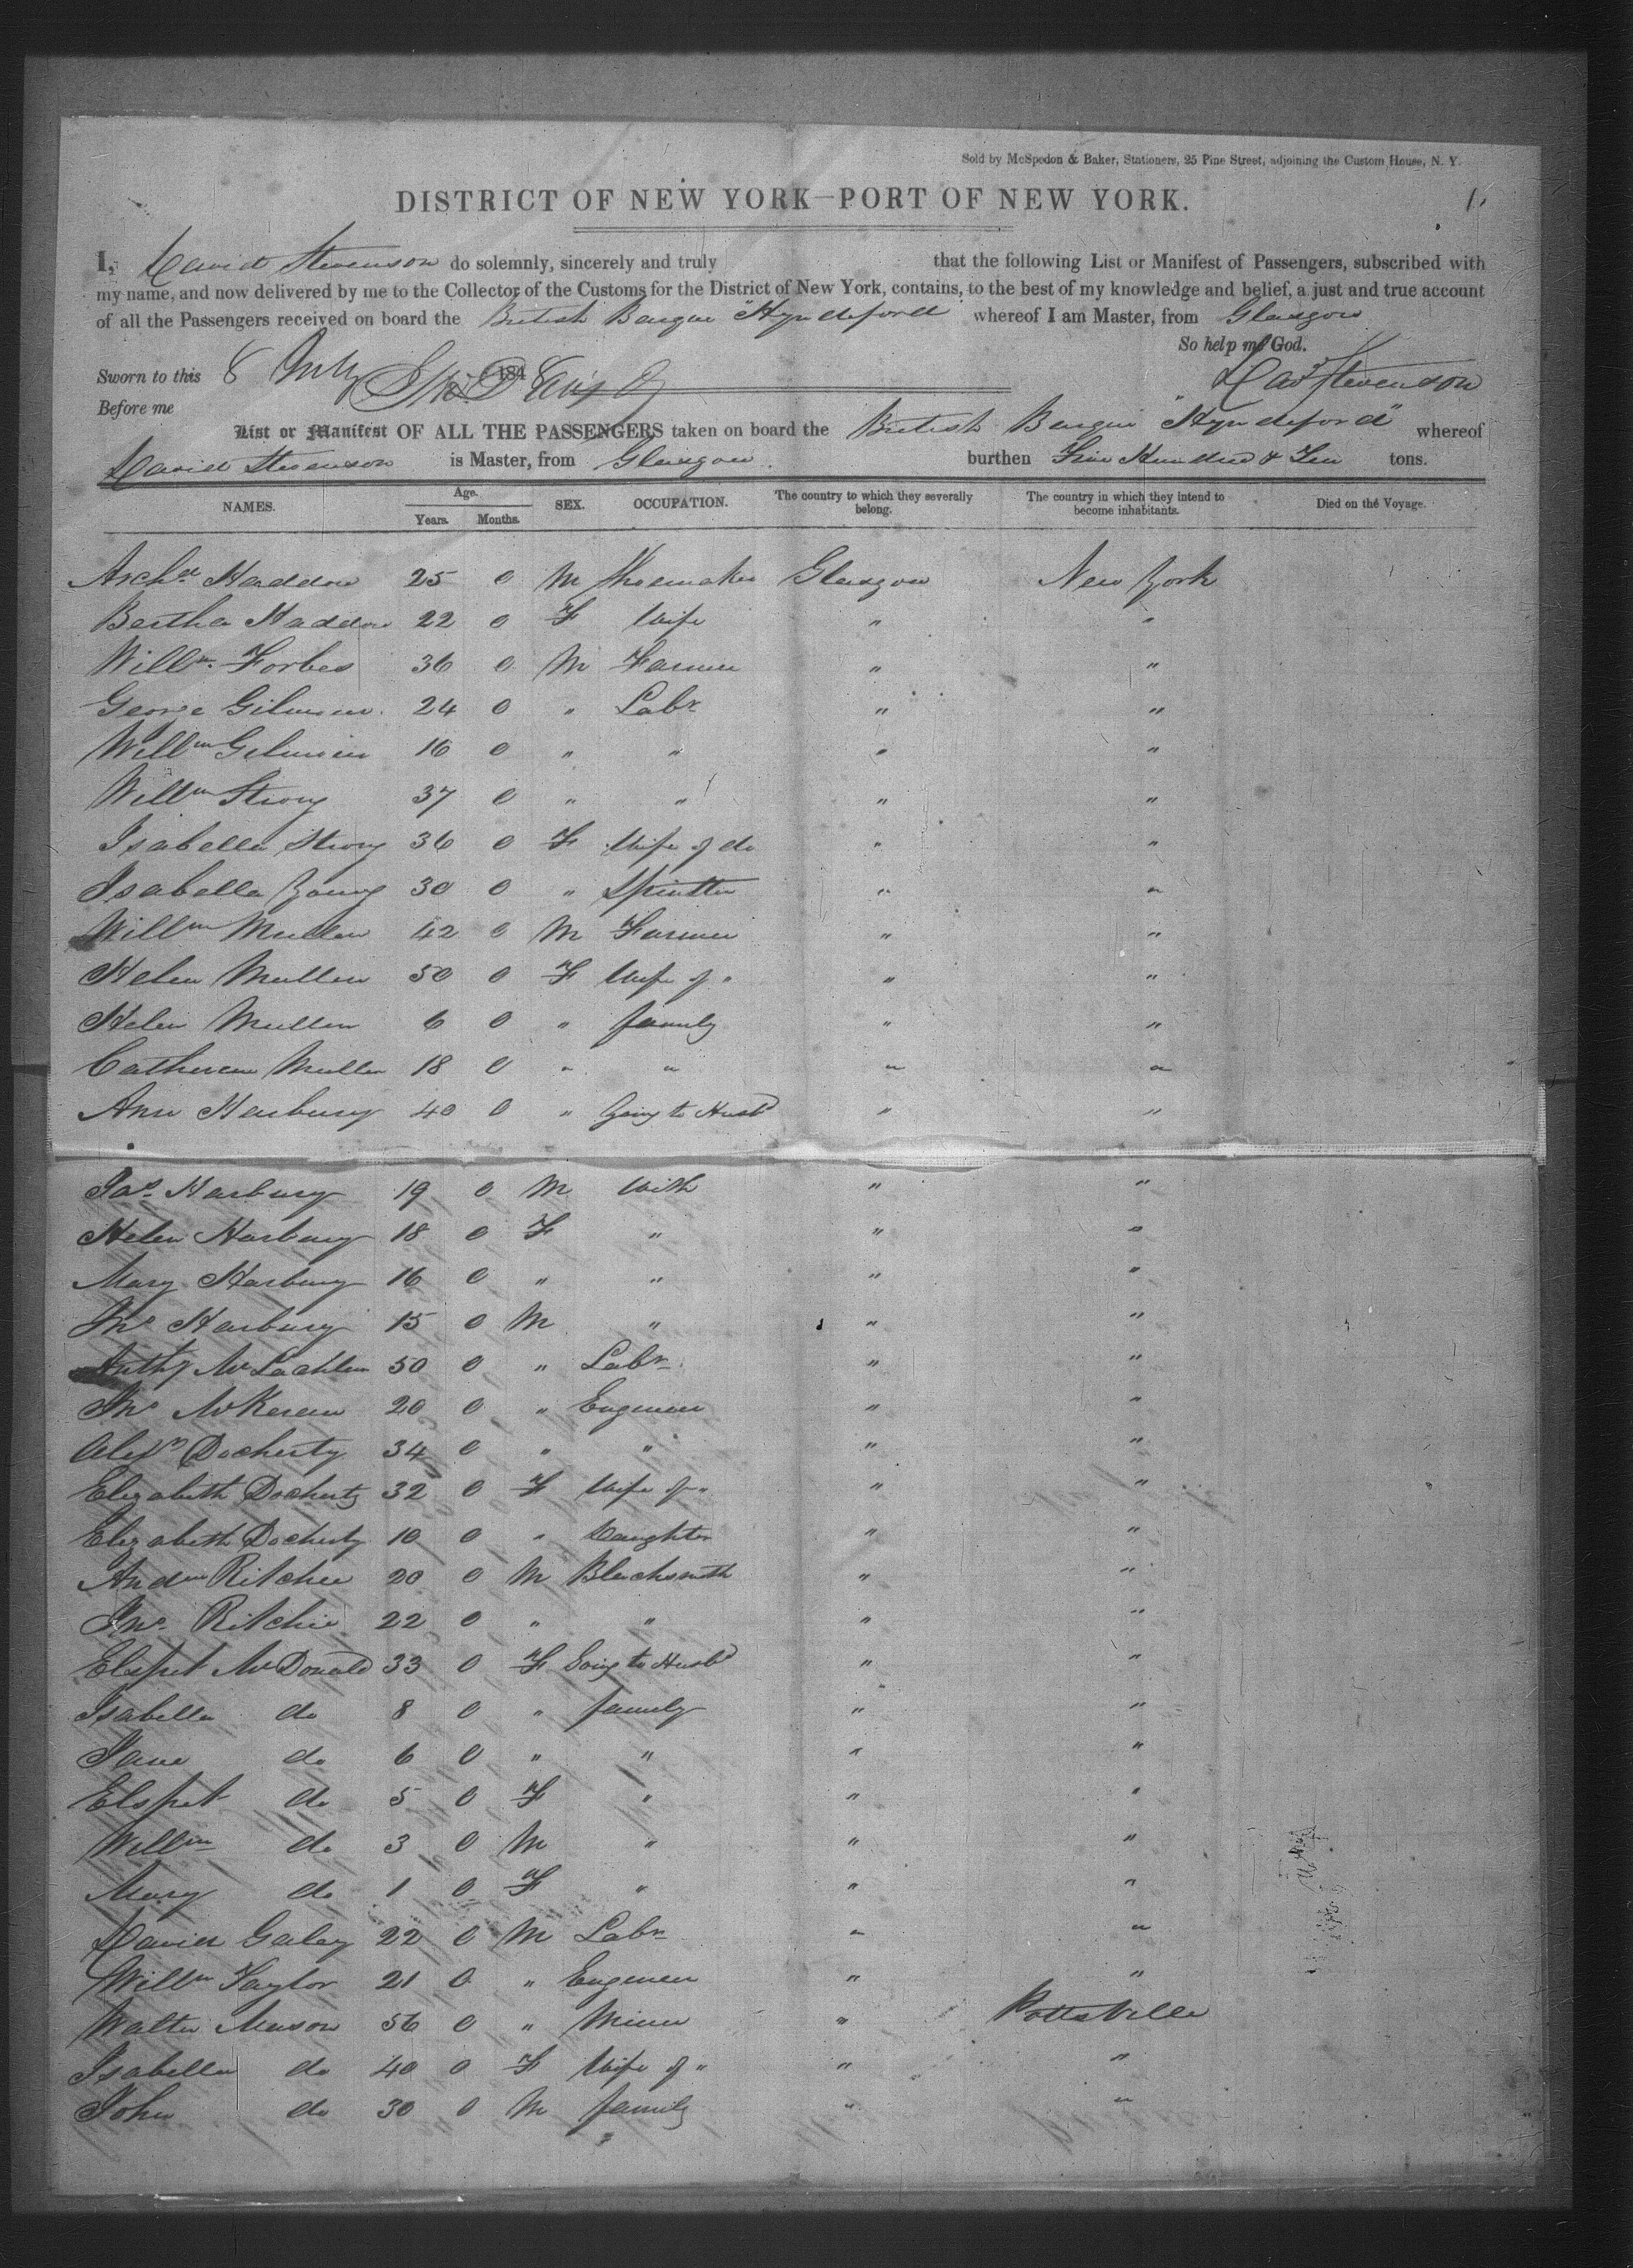 Sold by McSpedon & Baker, Stationers, 25 Pine Street, adjoining the Custom House, N. Y.
DISTRICT OF NEW YORK—PORT OF NEW YORK. 1.
I, David Stevenson do solemnly, sincerely and truly that the following List or Manifest of Passengers, subscribed with
my name, and now delivered by me to the Collector of the Customs for the District of New York, contains, to the best of my knowledge and belief, a just and true account
of all the Passengers received on board the British Barque "Hyndeford" whereof I am Master, from Glasgow
So help me God.
Sworn to this 8 July 184
Davd Stevenson
Before me
List or Manifest OF ALL THE PASSENGERS taken on board the British Barque "Hyndeford" whereof
David Stevenson is Master, from Glasgow. burthen Five Hundred & Ten tons.
NAMES. Age. Years. Months. SEX. OCCUPATION. The country to which they severally belong. The country in which they intend to become inhabitants. Died on the Voyage.
Archd Haddow 25 0 M Shoemaker Glasgow New York
Bertha Haddow 22 0 F Wife " "
Willm. Forbes 36 0 M Farmer " "
George Gilmour 24 0 " Labr " "
Willm Gilmour 16 0 " " " "
Willm Strong 37 0 " " " "
Isabella Strong 36 0 F Wife of do " "
Isabella Young 30 0 " Spinster " "
Willm Mullen 42 0 M Farmer " "
Helen Mullen 50 0 F Wife of " " "
Helen Mullen 6 0 " family " "
Catherine Mullen 18 0 " " " "
Ann Harbury 40 0 " Going to Husbd " "
Jas Harbury 19 0 M With " "
Helen Harbury 18 0 F " " "
Mary Harbury 16 0 " " " "
Jno Harbury 15 0 M " " "
Anthy McLachlan 50 0 " Labr " "
Jno 20 0 " Engineer " "
Alexr Docherty 34 0 " " " "
Elizabeth Docherty 32 0 F Wife of " " "
Elizabeth Docherty 10 0 " Daughter " "
Andw Ritchie 20 0 M Blacksmith " "
Jno. Ritchie 22 0 " " " "
Elspet McDonald 33 0 F Going to Husbd " "
Isabella do 8 0 " family " "
Jane do 6 0 " " " "
Elspet do 5 0 F " " "
Willm do 3 0 M " " "
Mary do 1 0 F " " "
David Galey 22 0 M Labr " "
Willm Taylor 21 0 " Engineer " "
Walter Mason 56 0 " Miner " Pottsville
Isabella do 40 0 F Wife of " " "
John do 30 0 M family " "
"